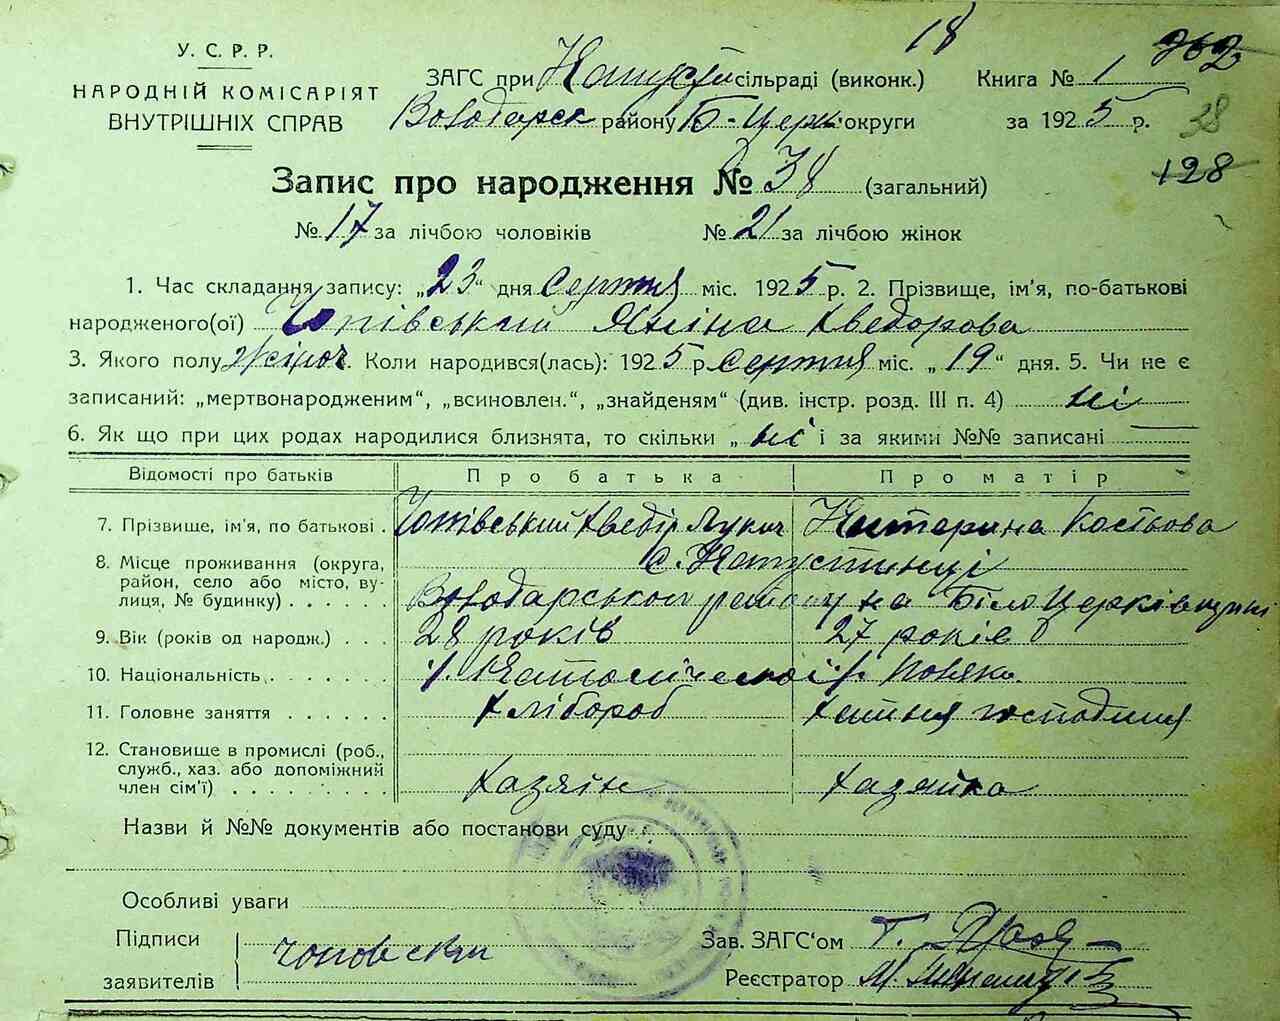 18
262
У. С. Р. Р.
НАРОДНІЙ КОМІСАРІЯТ
ВНУТРІШНІХ СПРАВ
ЗАГС при Капуст сільраді (виконк.) Книга № 1
Володарск району Б-Церк округи за 1925 р.
38
128
Запис про народження № 38 (загальний)
№ 17 за лічбою чоловіків № 21 за лічбою жінок
1. Час складання запису: „23“ дня Серпня міс. 1925 р. 2. Прізвище, ім'я, по-батькові
народженого(ої) Чопівський Яніна Хведорова
3. Якого полу жіноч. Коли народився(лась): 1925 р. Серпня міс. „19“ дня. 5. Чи не є
записаний: „мертвонародженим“, „всиновлен.“, „знайденям“ (див. інстр. розд. III п. 4) ні
6. Як що при цих родах народилися близнята, то скільки „ ні і за якими №№ записані
Відомості про батьків Про батька Про матір
7. Прізвище, ім'я, по батькові . Чопівський Хведір Лукич Катерина Костьова
8. Місце проживання (округа, с. Капустинці
район, село або місто, ву-
лиця, № будинку) . . . . . Володарського району на Білоцерківщині
9. Вік (років од народж.) . . . 28 років 27 років
10. Національність . . . . . . . Поляка
11. Головне заняття . . . . . . Хлібороб Хатня господиня
12. Становище в промислі (роб.,
служб., хаз. або допоміжний
член сім'ї) . . . . . . . . . Хазяїн Хазяйка
Назви й №№ документів або постанови суду
Особливі уваги
Підписи
заявителів Чоповски
Зав. ЗАГС'ом Г.
Реєстратор М.